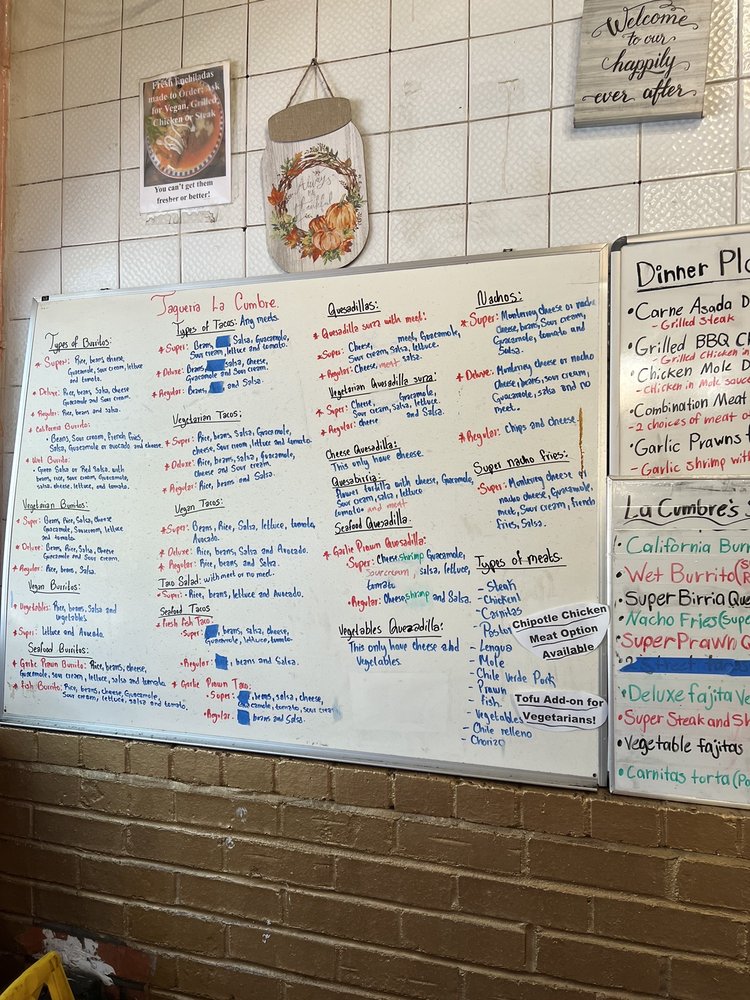 Fresh Enchiladas
made to Order: Ask
for Vegan, Grilled,
Chicken or Steak
You can't get them
fresher or better!
Always
be
thankful
Welcome
to our
happily
ever after
Taqueria La Cumbre.
Types of Burritos:
* Super: Rice, beans, cheese,
Guacamole, sour cream, lettuce
and tomato.
* Deluxe: Rice, beans, Salsa, cheese
Guacamole and Sour cream.
* Regular: Rice, beans and salsa.
* California Burrito:
- Beans, Sour cream, french fries,
Salsa, Guacamole or avocado, and cheese.
* Wet Burrito:
- Green Salsa or Red Salsa, with
beans, rice, sour cream, Guacamole,
salsa, cheese, lettuce, and tomato.
Vegetarian Burritos:
* Super: Beans, Rice, Salsa, Cheese
Guacamole, Sour cream, lettuce
and tomato.
* Deluxe: Beans, Rice, Salsa, Cheese
Guacamole and Sour cream.
* Regular: Rice, beans, Salsa.
Vegan Burritos:
* Vegetables: Rice, beans, salsa and
vegetables.
* Super: Lettuce and Avocado.
Seafood Burritos:
* Garlic Prawn Burrito: Rice, beans, cheese,
Guacamole, sour cream, lettuce, salsa and tomato
* Fish Burrito: Rice, beans, cheese, Guacamole,
Sour cream, lettuce, salsa and tomato.
Types of Tacos: Any meats.
* Super: Beans, Salsa, Guacamole,
Sour cream, lettuce and tomato.
* Deluxe: Beans, salsa, cheese,
Guacamole and Sour cream.
* Regular: Beans, and Salsa.
Vegetarian Tacos:
* Super: Rice, beans, Salsa, Guacamole,
cheese, Sour cream, lettuce and tomato.
* Deluxe: Rice, beans, salsa, Guacamole,
Cheese and Sour cream.
* Regular: Rice, beans and Salsa.
Vegan Tacos:
* Super: Beans, Rice, Salsa, lettuce, tomato,
Avocado.
* Deluxe: Rice, beans, Salsa and Avocado.
* Regular: Rice, beans and Salsa.
Taco Salad: with meat or no meat.
* Super: Rice, beans, lettuce and Avocado.
Seafood Tacos
* Fresh Fish Taco:
- Super: , beans, salsa, cheese,
Guacamole, lettuce, tomato.
- Regular: , beans and Salsa.
* Garlic Prown Taco:
- Super: , beans, salsa, cheese,
Guacamole, tomato, sour cream
- Regular: beans and Salsa.
Quesadillas:
* Quesadilla surra with meat:
* Super: Cheese, meat, Guacamole,
Sour cream, Salsa, lettuce.
* Regular: Cheese, meat salsa.
Vegetarian Quesadilla surra:
* Super: Cheese, Guacamole,
Sour cream, Salsa, lettuce.
* Regular: cheese and Salsa.
Cheese Quesadilla:
This only have cheese.
Quesabirria:
Flower tortilla with cheese, Guacamole,
Sour cream, salsa, lettuce
tomato and meat
Seafood Quesadilla.
* Garlic Prown Quesadilla:
Super: Cheese shrimp Guacamole,
Sour cream, salsa, lettuce,
tomato
* Regular: Cheese shrimp and Salsa.
Vegetables Quezadilla:
This only have cheese abd
Vegetables.
Nachos:
* Super: Monterrey cheese or nacho
cheese, beans, Sour cream,
Guacamole, tomato and
Salsa.
* Deluxe: Monterrey cheese or nacho
cheese, beans, sour cream,
Guacamole, salsa and no
meat.
* Regular: Chips and cheese.
Super nacho fries:
- Super: Monterrey cheese or
nacho cheese, Guacamole,
meat, Sour cream, french
fries, Salsa.
Types of meats.
- Steak
- Chicken
- Carnitas
- Pastor
- Lengua
- Mole
- Chile Verde Pork
- Prawn
- Fish
- Vegetables
- Chile relleno
- Chorizo
Chipotle Chicken
Meat Option
Available
Tofu Add-on for
Vegetarians!
Dinner Pla
• Carne Asada D
- Grilled Steak
• Grilled BBQ Ch
- Grilled Chicken in
• Chicken Mole D
- Chicken in Mole sauce
• Combination Meat
- 2 choices of meat o
• Garlic Prawns
- Garlic shrimp with
La Cumbre's S
• California Burr
• Wet Burrito (
• Super Birria Que
• Nacho Fries (Supe
• Super Prawn Q
• Deluxe fajita Ve
• Super Steak and Sh
• Vegetable fajitas
• Carnitas torta (Po